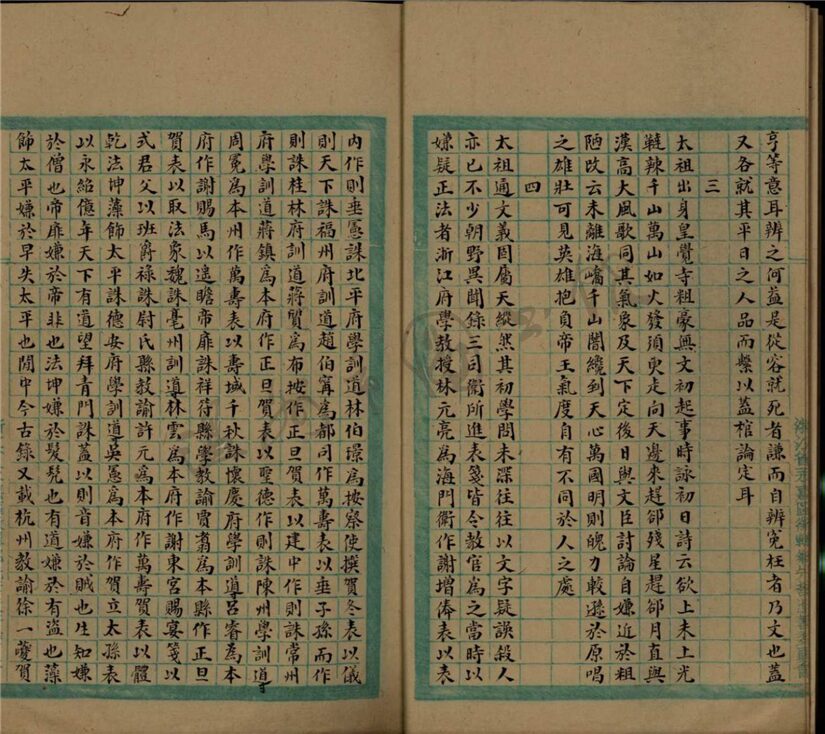 亨等意耳辨之何益是從容就死者謙而自辨冤枉者乃文也蓋
又各就其平日之人品而繫以蓋棺論定耳
三
太祖出身皇覺寺粗豪無文初起事時詠初日詩云欲上未上光
韃辣千山萬山如火發須臾走向天邊來趕卻殘星趕卻月直與
漢高大風歌同其氣象及天下定後日與文臣討論自嫌近於粗
陋改云未離海嶠千山闇纔到天心萬國明則魄力較遜於原唱
之雄壯可見英雄抱負帝王氣度自有不同於人之處
四
太祖通文義固屬天縱然其初學問未深往往以文字疑誤殺人
亦已不少朝野異聞錄三司衛所進表箋皆令教官為之當時以
嫌疑正法者浙江府學教授林元亮為海門衛作謝增俸表以表
內作則垂憲誅北平府學訓道林伯璟為按察使撰賀冬表以儀
則天下誅福州府訓道趙伯寗為都司作萬壽表以垂子孫而作
則誅桂林府訓道蔣質為布按作正旦賀表以建中作則誅常州
府學訓道蔣鎮為本府作正旦賀表以聖德作則誅陳州學訓道
周冕為本州作萬壽表以壽域千秋誅懷慶府學訓道呂睿為本
府作謝賜馬以遙瞻帝扉誅祥符縣學教諭賈翥為本縣作正旦
賀表以取法象魏誅亳州訓道林雲為本府作謝東宮賜宴箋以
式君父以班爵祿誅尉氏縣教諭許元為本府作萬壽賀表以體
乾法坤藻飾太平誅德安府學訓道吳憲為本府作賀立太孫表
以永紹億年天下有道望拜青門誅蓋以則音嫌於賊也生知嫌
於僧也帝扉嫌於帝非也法坤嫌於髮髡也有道嫌於有盜也藻
飾太平嫌於早失太平也閒中今古錄又載杭州教諭徐一夔賀